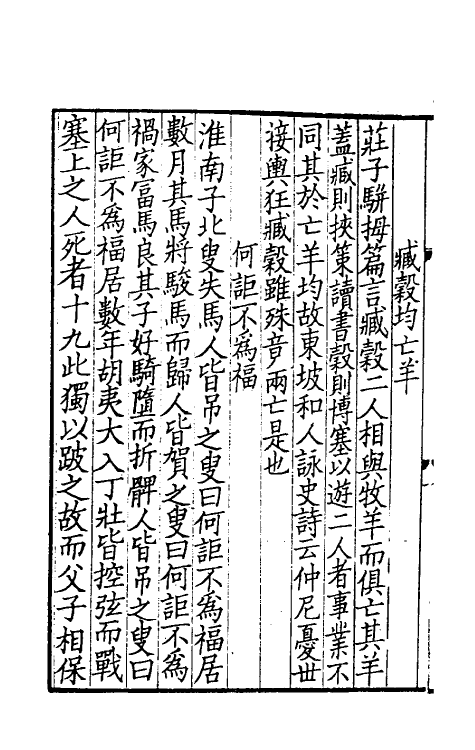 臧穀均亡羊
莊子駢拇篇言臧穀二人相與牧羊而俱亡其羊
蓋臧則挾筞讀書穀則博塞以遊二人者事業不
同其於亡羊均故東坡和人詠史詩云仲尼憂世
接輿狂臧穀雖殊音兩亡是也
何詎不為福
淮南子北叟失馬人皆吊之叟曰何詎不為福居
數月其馬將駿馬而歸人皆賀之叟曰何詎不為
禍家冨馬良其子好騎墮而折髀人皆吊之叟曰
何詎不為福居數年胡夷大入丁壯皆控弦而戰
塞上之人死者十九此獨以跛之故而父子相保